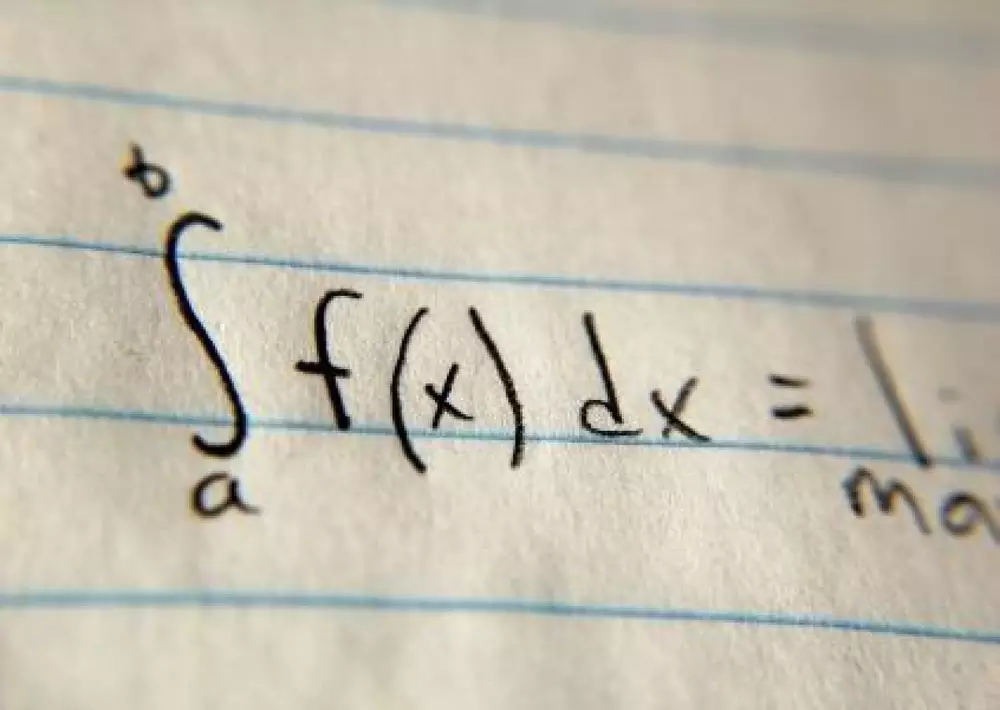 b
∫ f(x) dx = li
a ma